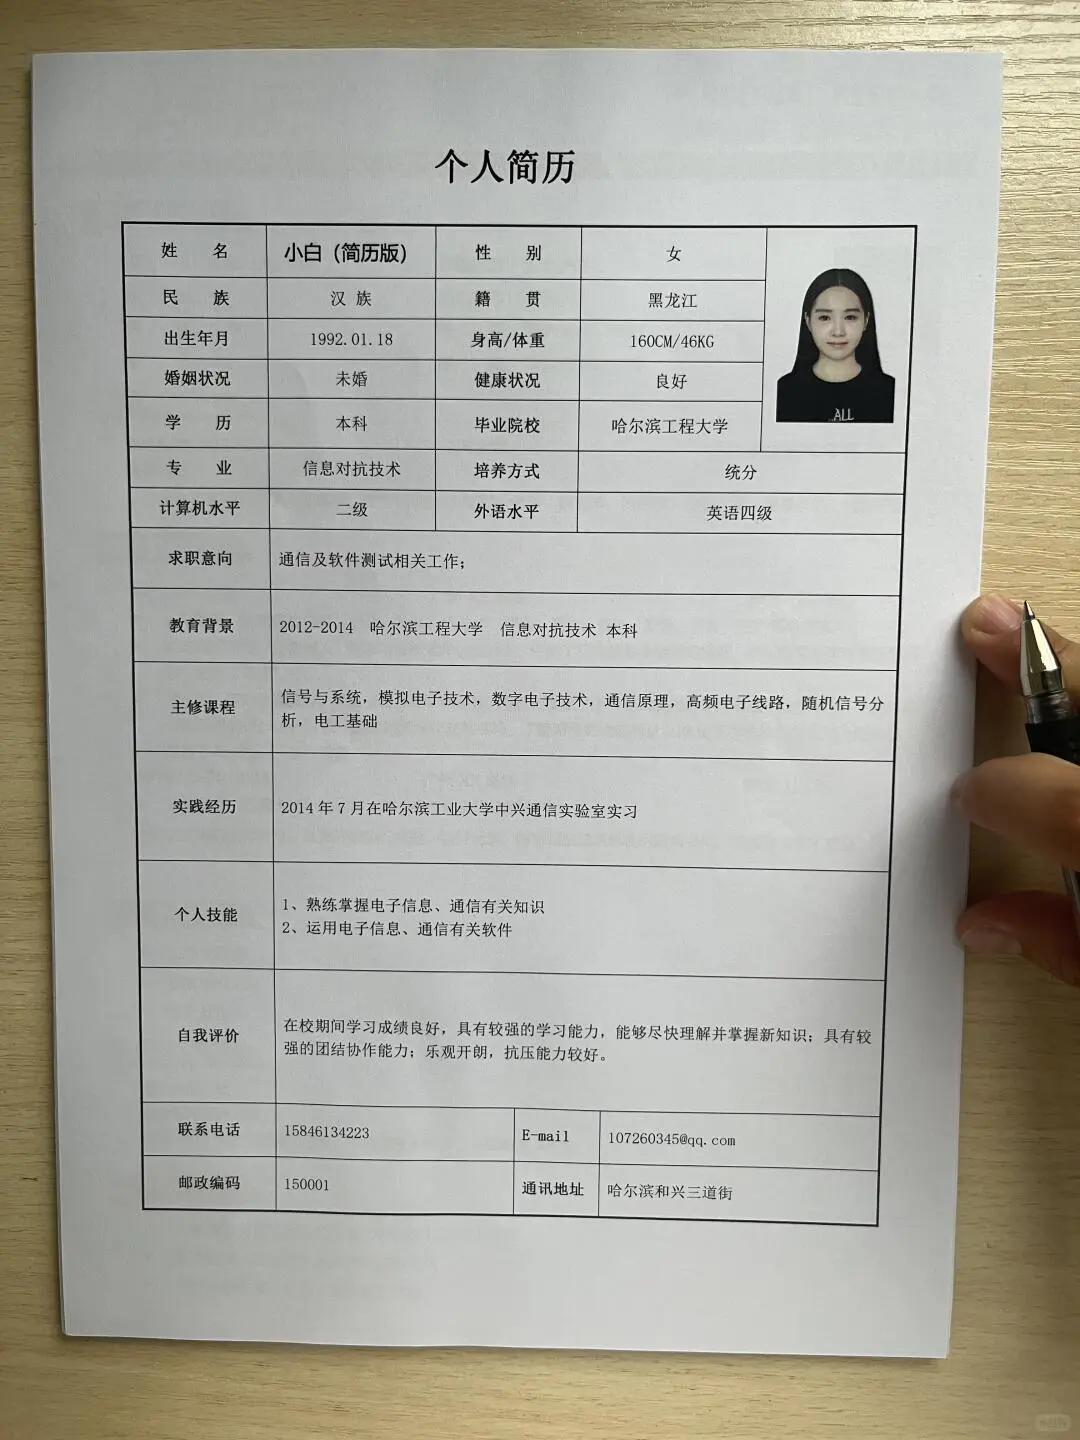 个人简历
姓 名 小白（简历版） 性 别 女
民 族 汉 族 籍 贯 黑龙江
出生年月 1992.01.18 身高/体重 160CM/46KG
婚姻状况 未婚 健康状况 良好
学 历 本科 毕业院校 哈尔滨工程大学
ALL
专 业 信息对抗技术 培养方式 统分
计算机水平 二级 外语水平 英语四级
求职意向 通信及软件测试相关工作；
教育背景 2012-2014 哈尔滨工程大学 信息对抗技术 本科
主修课程 信号与系统，模拟电子技术，数字电子技术，通信原理，高频电子线路，随机信号分
析，电工基础
实践经历 2014 年 7 月在哈尔滨工业大学中兴通信实验室实习
个人技能 1、熟练掌握电子信息、通信有关知识
2、运用电子信息、通信有关软件
自我评价 在校期间学习成绩良好，具有较强的学习能力，能够尽快理解并掌握新知识；具有较
强的团结协作能力；乐观开朗，抗压能力较好。
联系电话 15846134223 E-mail 107260345@qq.com
邮政编码 150001 通讯地址 哈尔滨和兴三道街